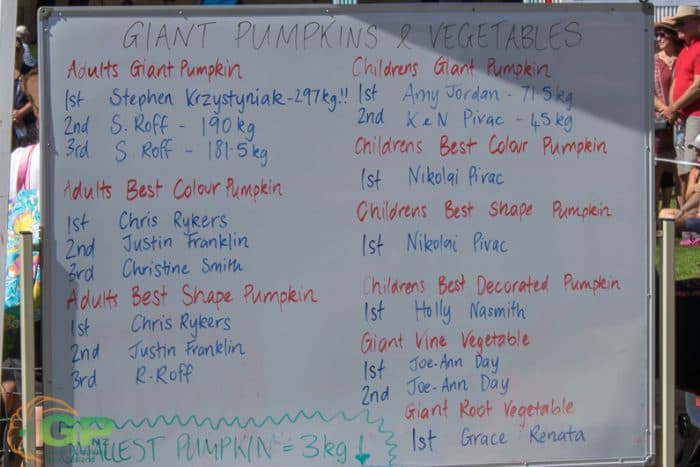 GIANT PUMPKINS & VEGETABLES
Adults Giant Pumpkin
1st Stephen Krzystyniak - 297kg!!
2nd S. Roff - 190kg
3rd S Roff - 181.5kg
Adults Best Colour Pumpkin
1st Chris Rykers
2nd Justin Franklin
3rd Christine Smith
Adults Best Shape Pumpkin
1st Chris Rykers
2nd Justin Franklin
3rd R. Roff
SMALLEST PUMPKIN = 3kg ↓
Childrens Giant Pumpkin
1st Amy Jordan - 71.5kg
2nd K e N Pirac - 45kg
Childrens Best Colour Pumpkin
1st Nikolai Pirac
Childrens Best Shape Pumpkin
1st Nikolai Pirac
Childrens Best Decorated Pumpkin
1st Holly Nasmith
Giant Vine Vegetable
1st Joe-Ann Day
2nd Joe-Ann Day
Giant Root Vegetable
1st Grace Renata